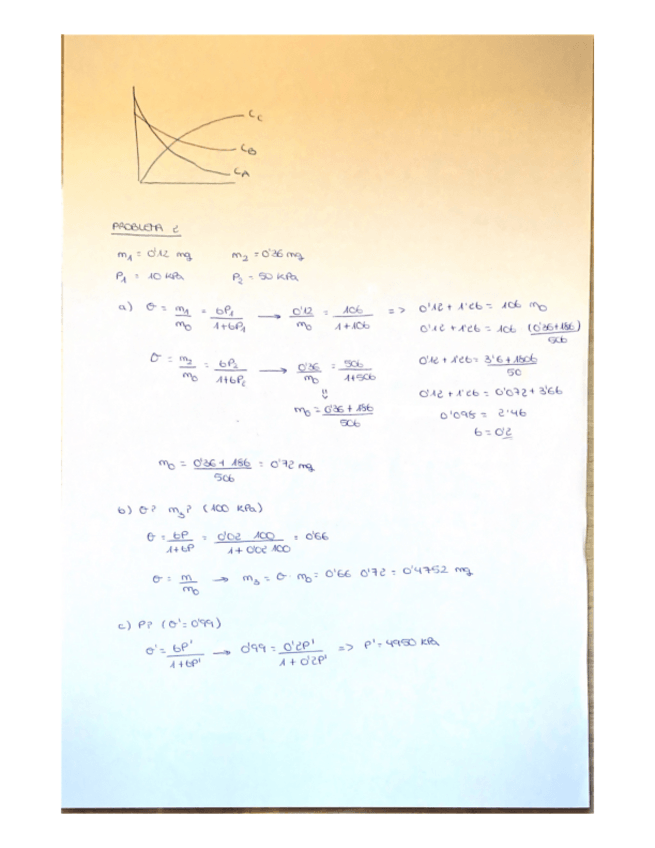 CC
CB
CA
PROBLEMA 2
m1 = 0'12 mg m2 = 0'36 mg
P1 = 10 kPa P2 = 50 kPa
a) θ = m1/m0 = bP1/(1+bP1) → 0'12/m0 = 10b/(1+10b) => 0'12 + 1'2b = 10b m0
0'12 + 1'2b = 10b (0'36+18b)/50b
θ = m2/m0 = bP2/(1+bP2) → 0'36/m0 = 50b/(1+50b) 0'12 + 1'2b = 3'6 + 180b/50
m0 = 0'36 + 18b/50b 0'12 + 1'2b = 0'072 + 3'6b
0'048 = 2'4b
b = 0'2
m0 = 0'36 + 18b/50b = 0'72 mg
b) θ? m3? (100 kPa)
θ = bP/(1+bP) = 0'02 100/(1 + 0'02 100) = 0'66
θ = m/m0 → m3 = θ · m0 = 0'66 0'72 = 0'4752 mg
c) P? (θ' = 0'99)
θ' = bP'/(1+bP') → 0'99 = 0'2P'/(1 + 0'2P') => P' = 4950 kPa